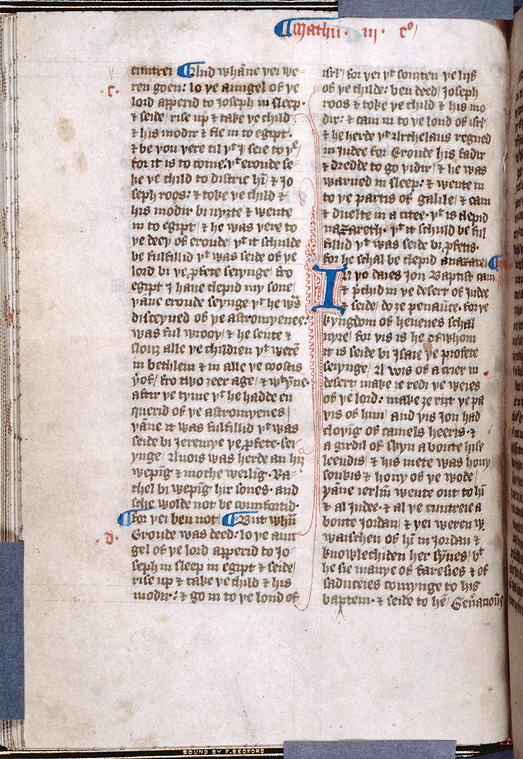 Mathu · iij · co
cuntrei And whāne yei we
c.
ren goen: lo ye aungel of ye
lord apperid to Joseph in sleep ·
& seide / rise up & take ye child:
& his modir & fle in to egipt ·
& be you yere til yt J seie to ye /
for it is to come · yt eroude se=
ke ye child to distrie hī / & Jo
seph roos: & toke ye child &
his modir bi nyȝte & wente
in to egipt / & he was yere to
ye deey of eroude / yt it schulde
be fulfillid yt was seide of ye
lord bi ye pfete seiynge / fro
egipt J haue clepid my sone /
yāne eroude seynge yt he was
disceyued of ye astromyenes:
was ful wrooy / & he sente &
slow alle ye children yt werē
in bethleem & in alle ye coostis
yof / fro two ȝeer age / & wyine ·
aftir ye tyme yt he hadde en
querid of ye astromyenes /
yāne it was fulfillid yt was
seide bi Jeremye ye pfete sei=
ynge / A uois was herde an hiȝ
wepīg & moche weilīg · Ra=
thel bi wepīg hir sones · and
sche wolde not be counfortid ·
for yei ben not / But whāne
d.
Eroude was deed: lo ye aun
gel of ye lord apperid to Jo
seph in sleep in egipt & seide /
rise up & take ye child & his
modir: & go in to ye lond of
isrl / for yei yt souȝten ye lijf
of ye childe: ben deed / Joseph
roos & toke ye child & his mo
dir: & cam in to ye lond of isrl
& he herde yt Archelaus regned
in Judee for Eroude his fadir
& dredde to go yidir / & he was
warned in sleep: & wente in
to ye partis of galile / & cam
& dwelte in a citee · yt is clepid
nazareth · yt it schuld be ful
fillid yt was seide bi pfetis ·
for he schal be clepid anazaren
In yo daies Jon Baptist cam
& pchid in ye desert of Judee
& seide / do ȝe penaūce · for ye
kyngdom of heuenes schal
nyȝe / for yis is he of whom
it is seide bi Jsaie ye profete
seiynge / A uois of a crier in
desert: make ȝe redi ye weies
of ye lord · make ȝe riȝt ye pa
yis of him / and yis Jon had
cloyīg of camels heeris · &
a girdil of skyn aboute his
leendis / & his mete was hony
soukis & hony of ye wode /
yāne ierlm wente out to hī
& al iudee · & al ye cuntreie a
boute Jordan / & yei weren w
waischen of hī in Jordan &
knowlechiden her synes / but
he sie manye of fariseis & of
saduceies comynge to his
baptem · & seide to hē / Generaciouns
BOUND BY F. BEDFORD